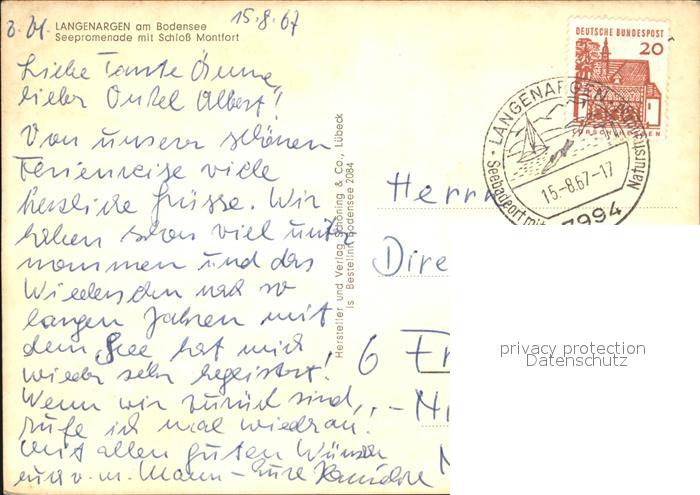 z. Zt. LANGENARGEN am Bodensee 15.8.67
Seepromenade mit Schloß Montfort
Liebe Tante Änne,
lieber Onkel Albert!
Von unserer schönen
Ferienreise viele
herzliche Grüsse. Wir
haben schon viel unter-
nommen und das
Wiedersehen nach so
langen Jahren mit
dem See hat mich
wieder sehr begeistert!
Wenn wir zurück sind,
rufe ich mal wieder an.
Mit allen guten Wünschen
auch v. m. Mann - Eure
Hersteller und Verlag Schöning & Co., Lübeck
Bestellnr. Bodensee 2084
DEUTSCHE BUNDESPOST
20
TORSCHHALLEN
LANGENARGEN
Seebadeort mit
15.-8.67-17
7994
Herrn
Dire
6
privacy protection
Datenschutz